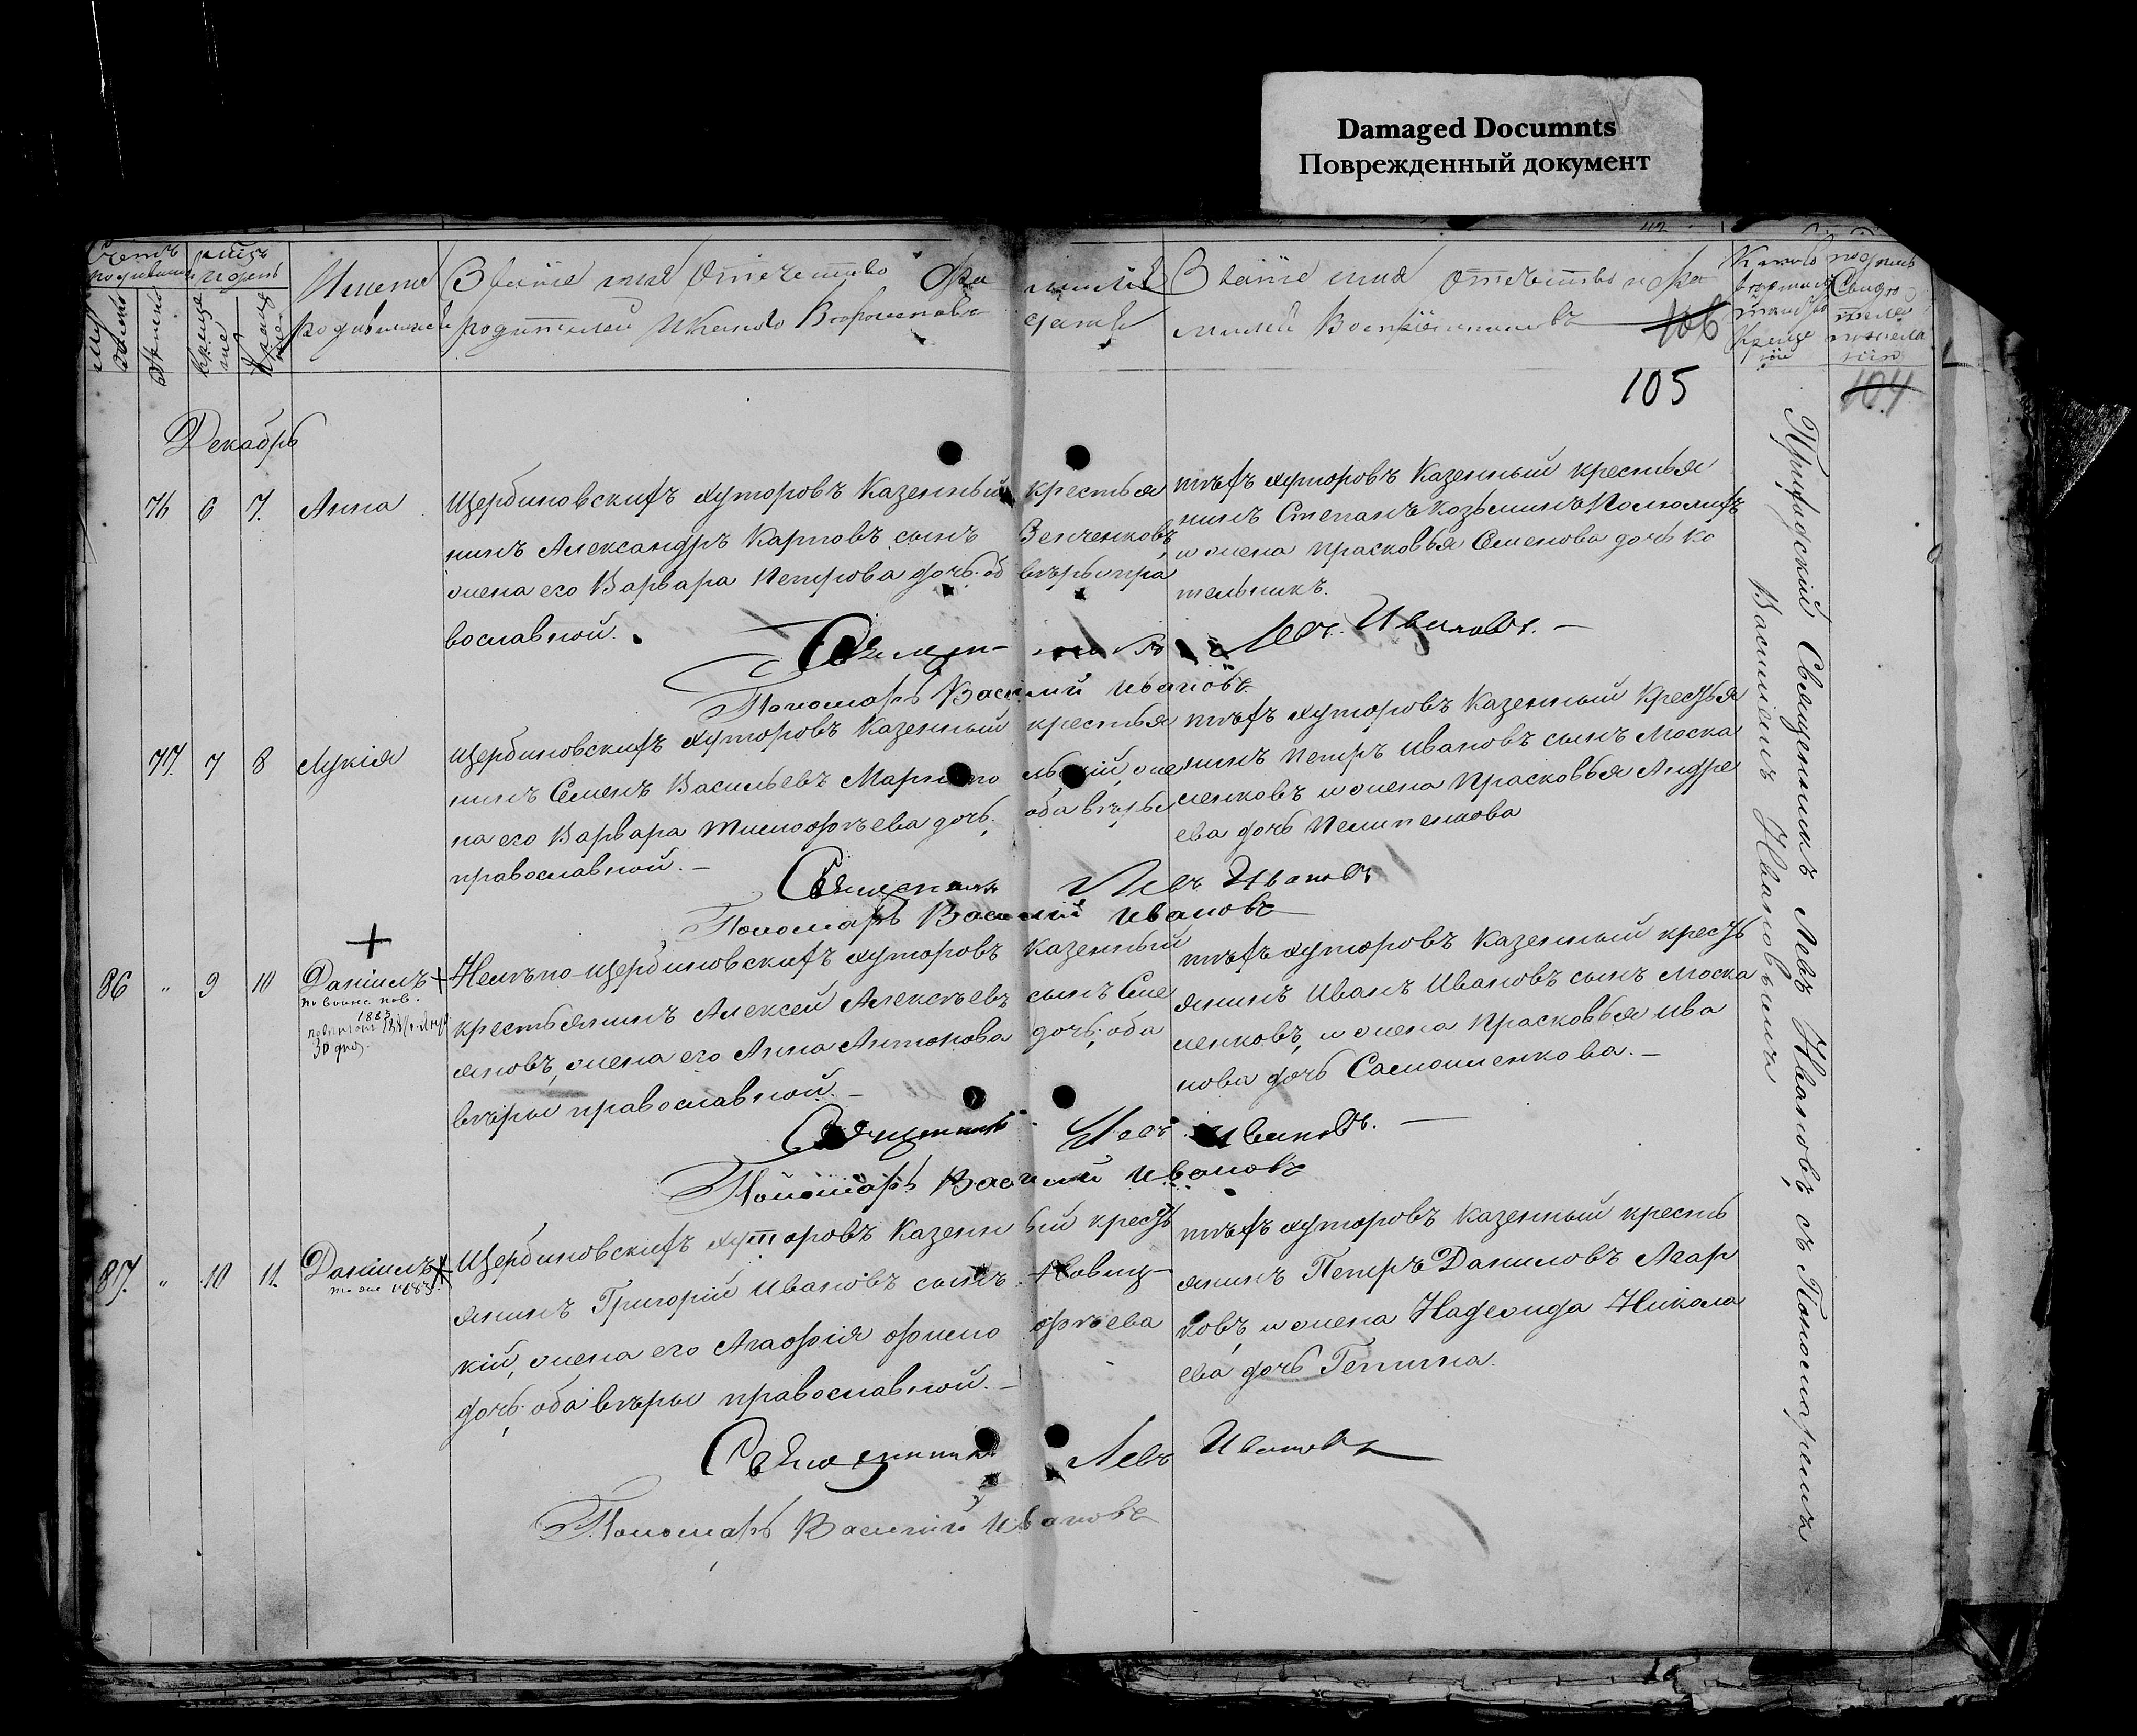 Damaged Documnts
Поврежденный документ
Счетъ
родившихся
Мѣсяцъ
и день
Имена
родившихся
Званіе имя отечество и фамилія
родителей и какого вѣроисповѣданія
Званіе имя отечество и фа
милія Воспріемниковъ
106
105
104
Декабрь
76 6 7. Анна
Щербиновскихъ хуторовъ Казенный крестья
нинъ Александръ Карповъ сынъ Зенченковъ,
жена его Варвара Петрова дочь. об вѣры пра
вославной.
тѣхъ хуторовъ Казенный крестья
нинъ Степанъ Козьминъ
и жена Прасковья Семенова дочь Ко
тельникъ.
Священникъ Левъ Ивановъ.
Пономарь Василий Ивановъ
77. 7 8 Лукія
Щербиновскихъ хуторовъ Казенный крестья
нинъ Семенъ Васильевъ же
на его Варвара Тимофѣева дочь, оба вѣры
православной.
тѣхъ хуторовъ Казенный кресть я
нинъ Петръ Ивановъ сынъ Моска
ленковъ и жена Прасковья Андре
ева дочь Пелипенкова
Священникъ Левъ Ивановъ
Пономарь Василий Ивановъ
86 " 9 10 Даніилъ +
1883
Немѣно-Щербиновскихъ хуторовъ Казенный
крестьянинъ Алексей Алексѣевъ сынъ Сме
яновъ, жена его Анна Антонова дочь, оба
вѣры православной.
тѣхъ хуторовъ Казенный кресть
янинъ Иванъ Ивановъ сынъ Моска
ленковъ, и жена Прасковья Ива
нова дочь Самошенкова.
Священникъ Левъ Ивановъ.
Пономарь Василий Ивановъ
87. " 10 11. Даніилъ
тоже 1883.
Щербиновскихъ хуторовъ Казенный кресть
янинъ Григорій Ивановъ сынъ Новиц-
кій, жена его Агафія Фимо фѣева
дочь, оба вѣры православной.
тѣхъ хуторовъ Казенный кресть
янинъ Петръ Даниловъ Агар
ковъ, и жена Надежда Никола
ева дочь Гепина.
Священникъ Левъ Ивановъ
Пономарь Василий Ивановъ
Приходскій Священникъ Левъ Ивановъ, съ Пономаремъ
Василіемъ Ивановымъ